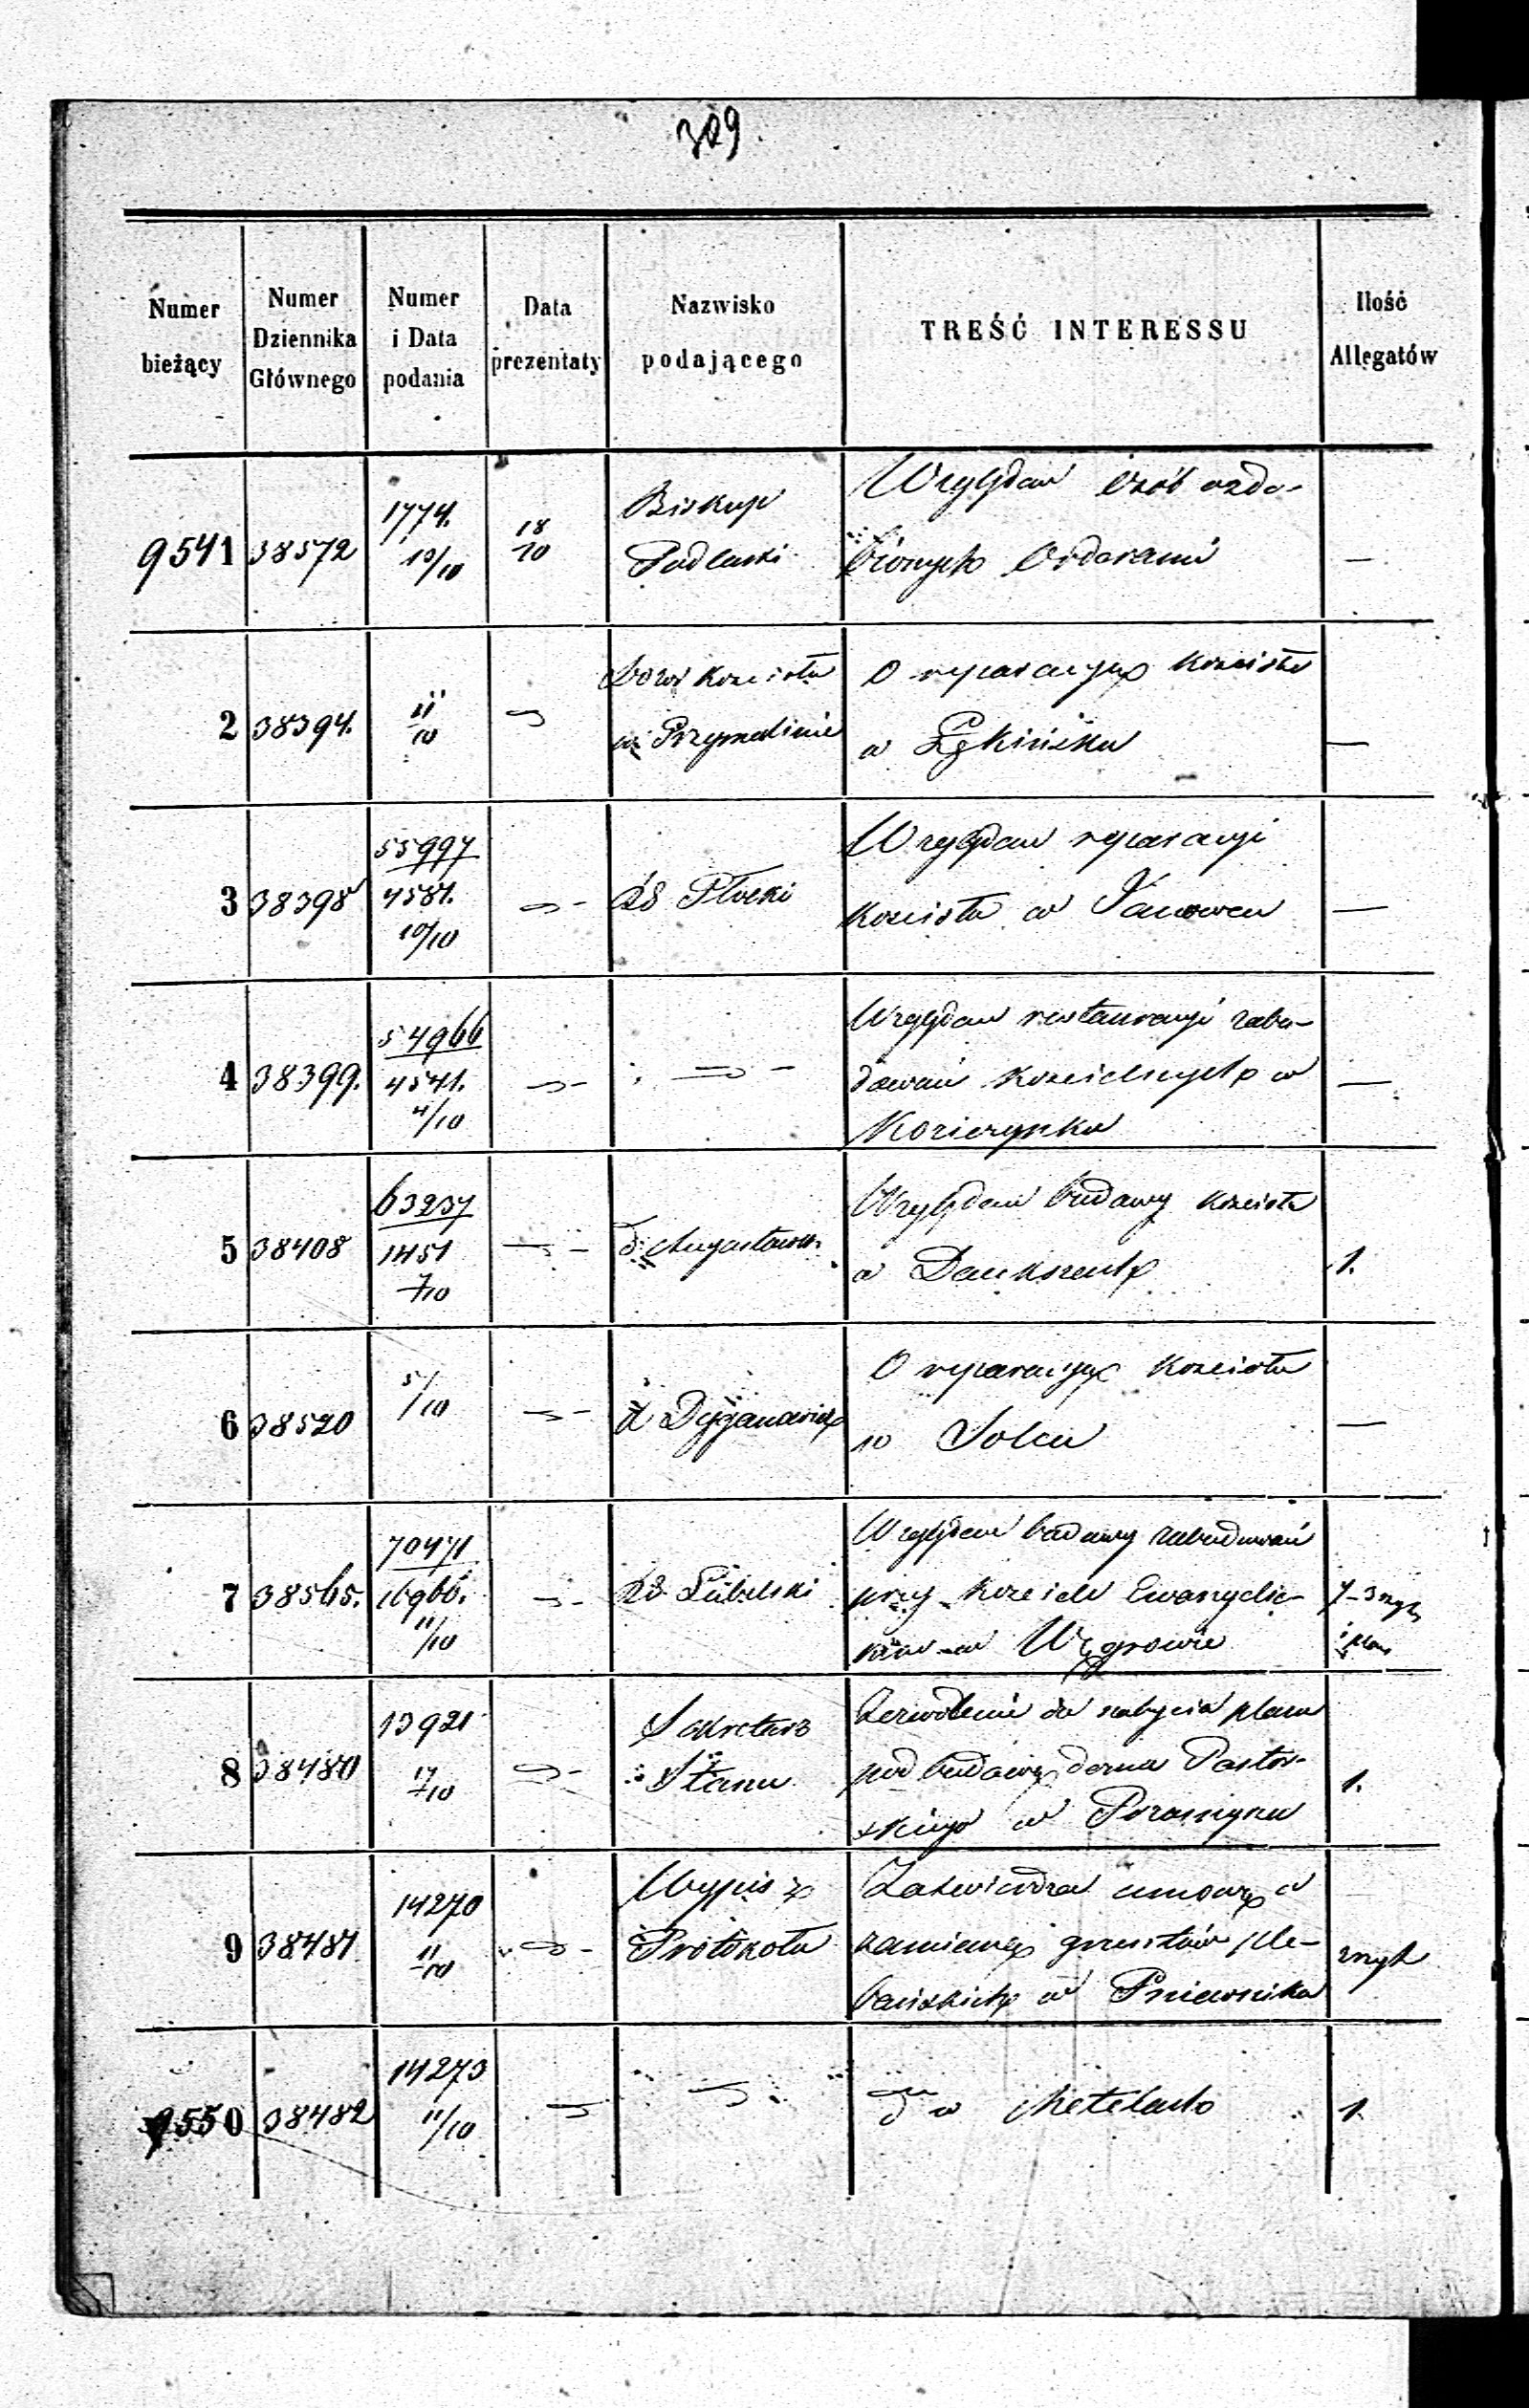 309.
Numer bieżący
Numer Dziennika Głównego
Numer i Data podania
Data prezentaty
Nazwisko podającego
TREŚĆ INTERESSU
Ilość Allegatów
9541 38572 1774. 10/10 18/10 Biskup Podlaski
Względem Osób ozdo-
bionych Orderami —
2 38394. 11/10 Kościoła
w
O reparacyę Kościoła
w —
3 38398 55997 4581. 10/10 RG Płocki
Względem reparacyi
Kościoła w Janowcu —
4 38399. 54966 4541. 4/10
Względem restauracyi zabu-
dowań Kościelnych w —
5 38408 63237 1451 7/10 Augustowski
Względem budowy Kościoła
w 1.
6 38520 5/10
O reparacyę Kościoła
w Solcu —
7 38565. 70471 16966. 11/10 RG Lubelski
Względem budowy zabudowań
przy Kościele Ewangelic-
kim w Węgrowie
8 38480 13921 17/10 Sekretarz Stanu
Zezwolenie na nabycie placu
pod budowę domu Pastor-
skiego w 1.
9 38481 14270 11/10 Wypis z Protokołu
Zatwierdza umowę o
zamianę gruntów ple-
bańskich w Pniewniku
9550 38482 14273 11/10
w 1